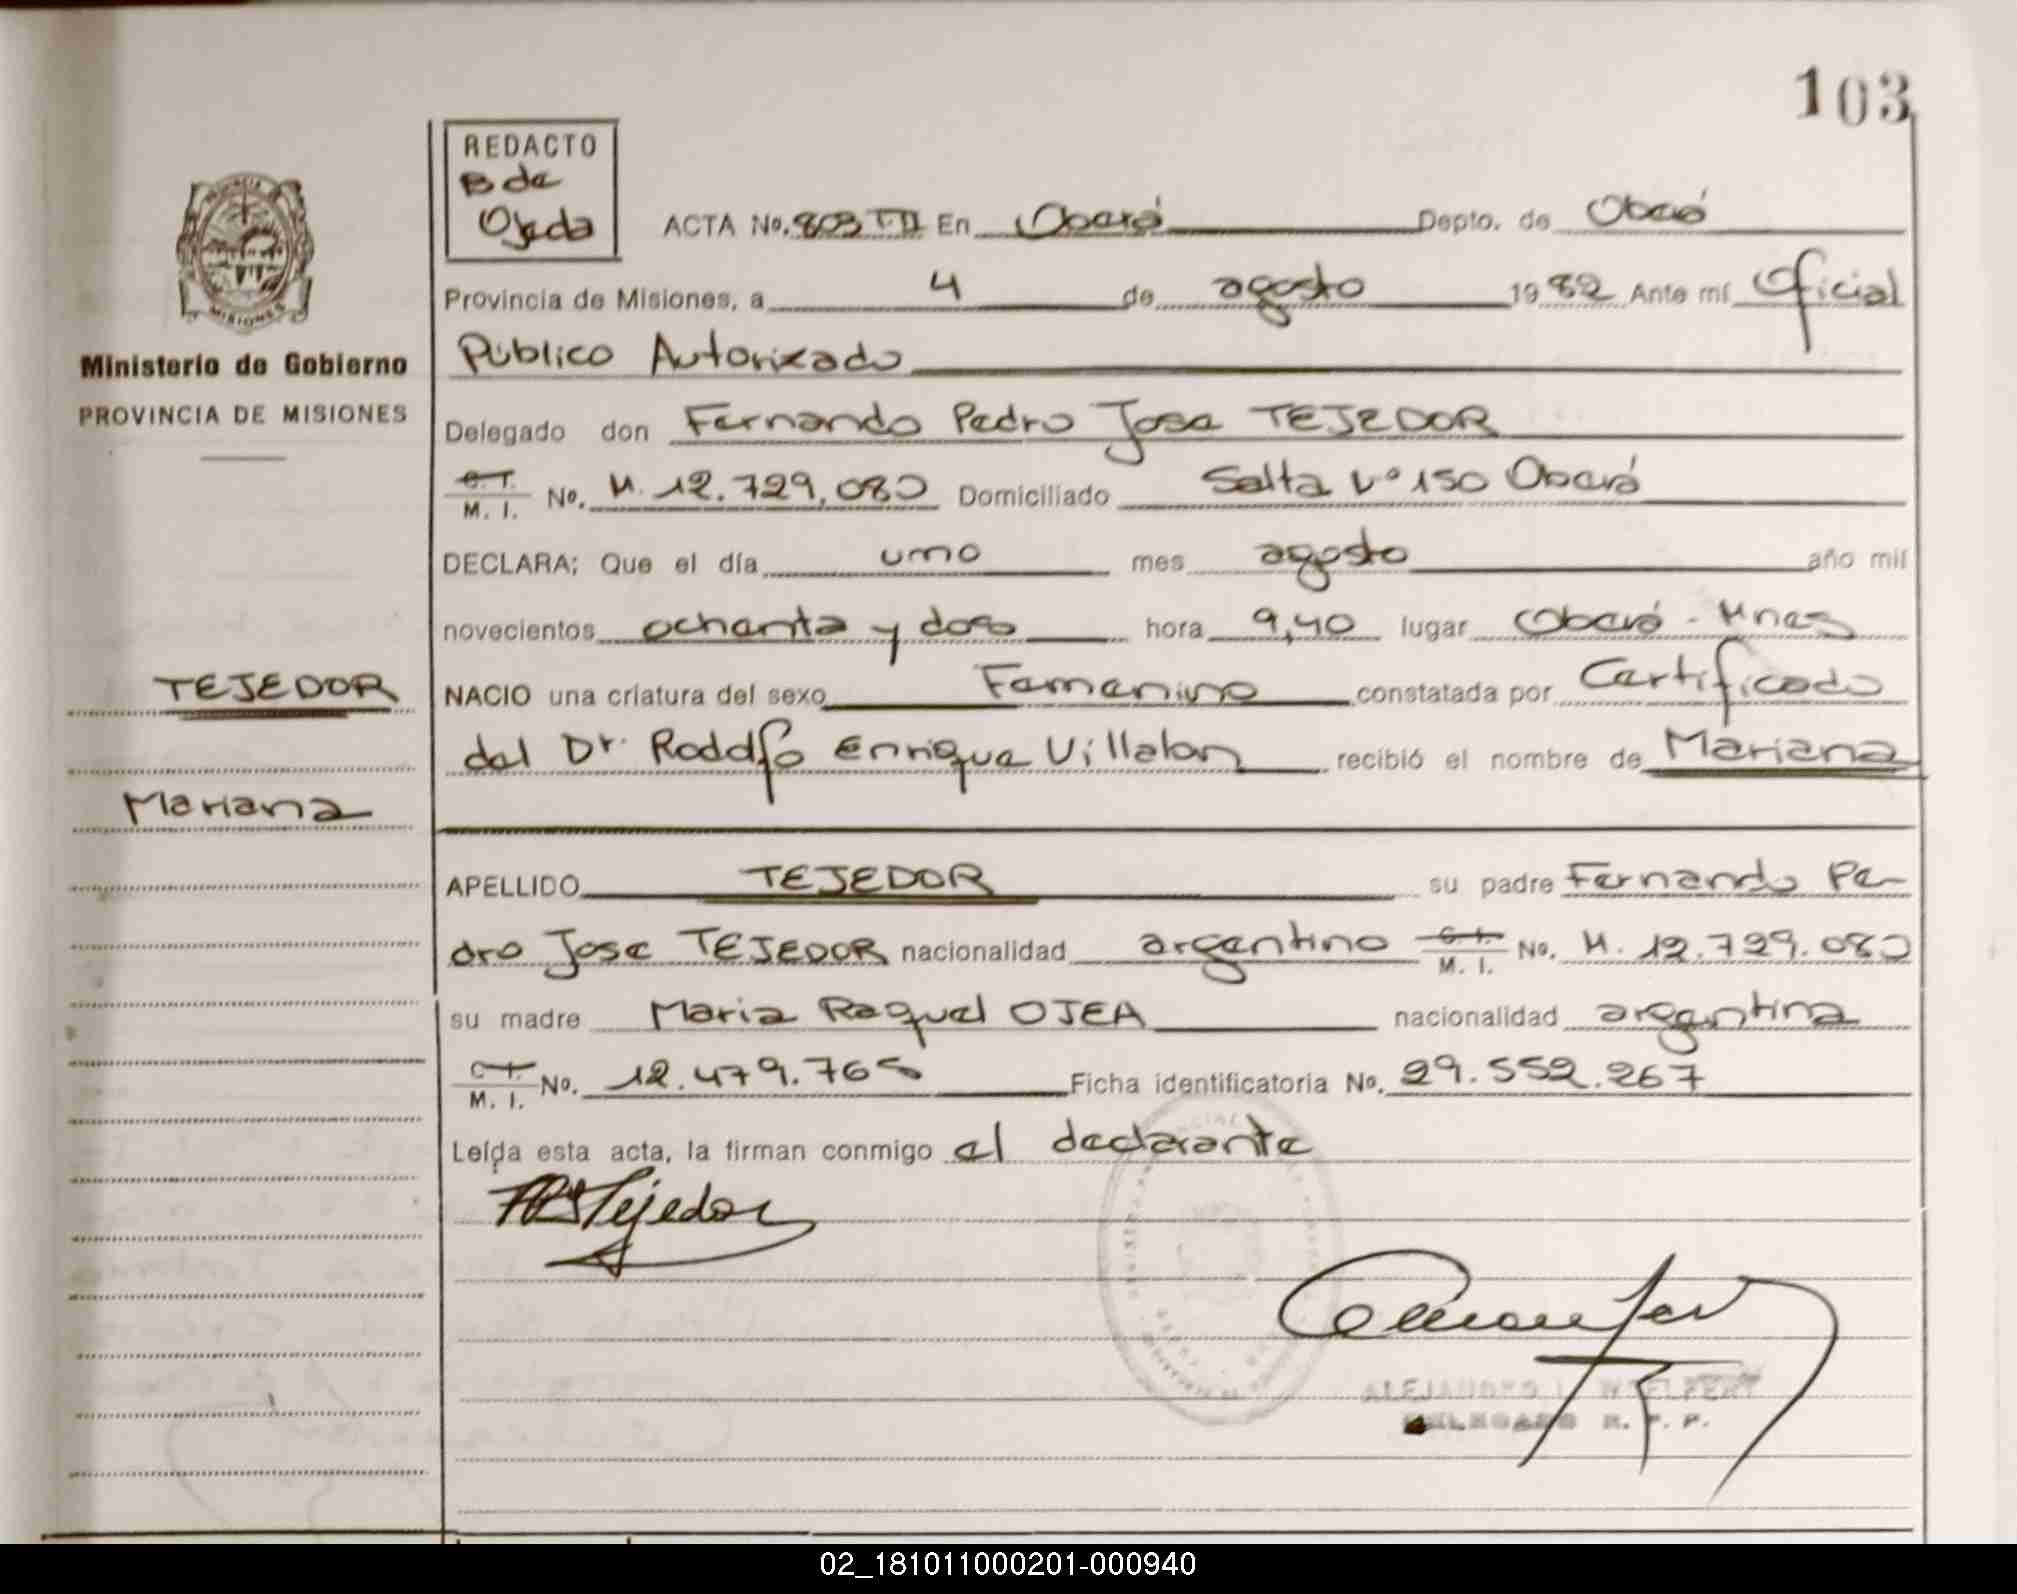 103
REDACTO
B de
Ojeda
ACTA No. 803 T-II En Oberá Depto. de Oberá
Provincia de Misiones, a 4 de agosto 1982 Ante mí Oficial
Público Autorizado
Delegado don Fernando Pedro Jose TEJEDOR
C. I. M. I. No. M. 12.729.080 Domiciliado Salta Nº 150 Oberá
DECLARA; Que el día uno mes agosto año mil
novecientos ochenta y dos hora 9,40 lugar Oberá - Mnes
NACIO una criatura del sexo Femenino constatada por Certificado
del Dr. Rodolfo Enrique Villalon recibió el nombre de Mariana
APELLIDO TEJEDOR su padre Fernando Pe-
dro Jose TEJEDOR nacionalidad argentino C. I. M. I. No. M. 12.729.080
su madre Maria Raquel OJEA nacionalidad argentina
C. I. M. I. No. 12.479.765 Ficha identificatoria No. 29.552.267
Leída esta acta, la firman conmigo el declarante
Tejedor
DELEGADO R. P. P.
PROVINCIA
MISIONES
Ministerio de Gobierno
PROVINCIA DE MISIONES
TEJEDOR
Mariana
02_181011000201-000940